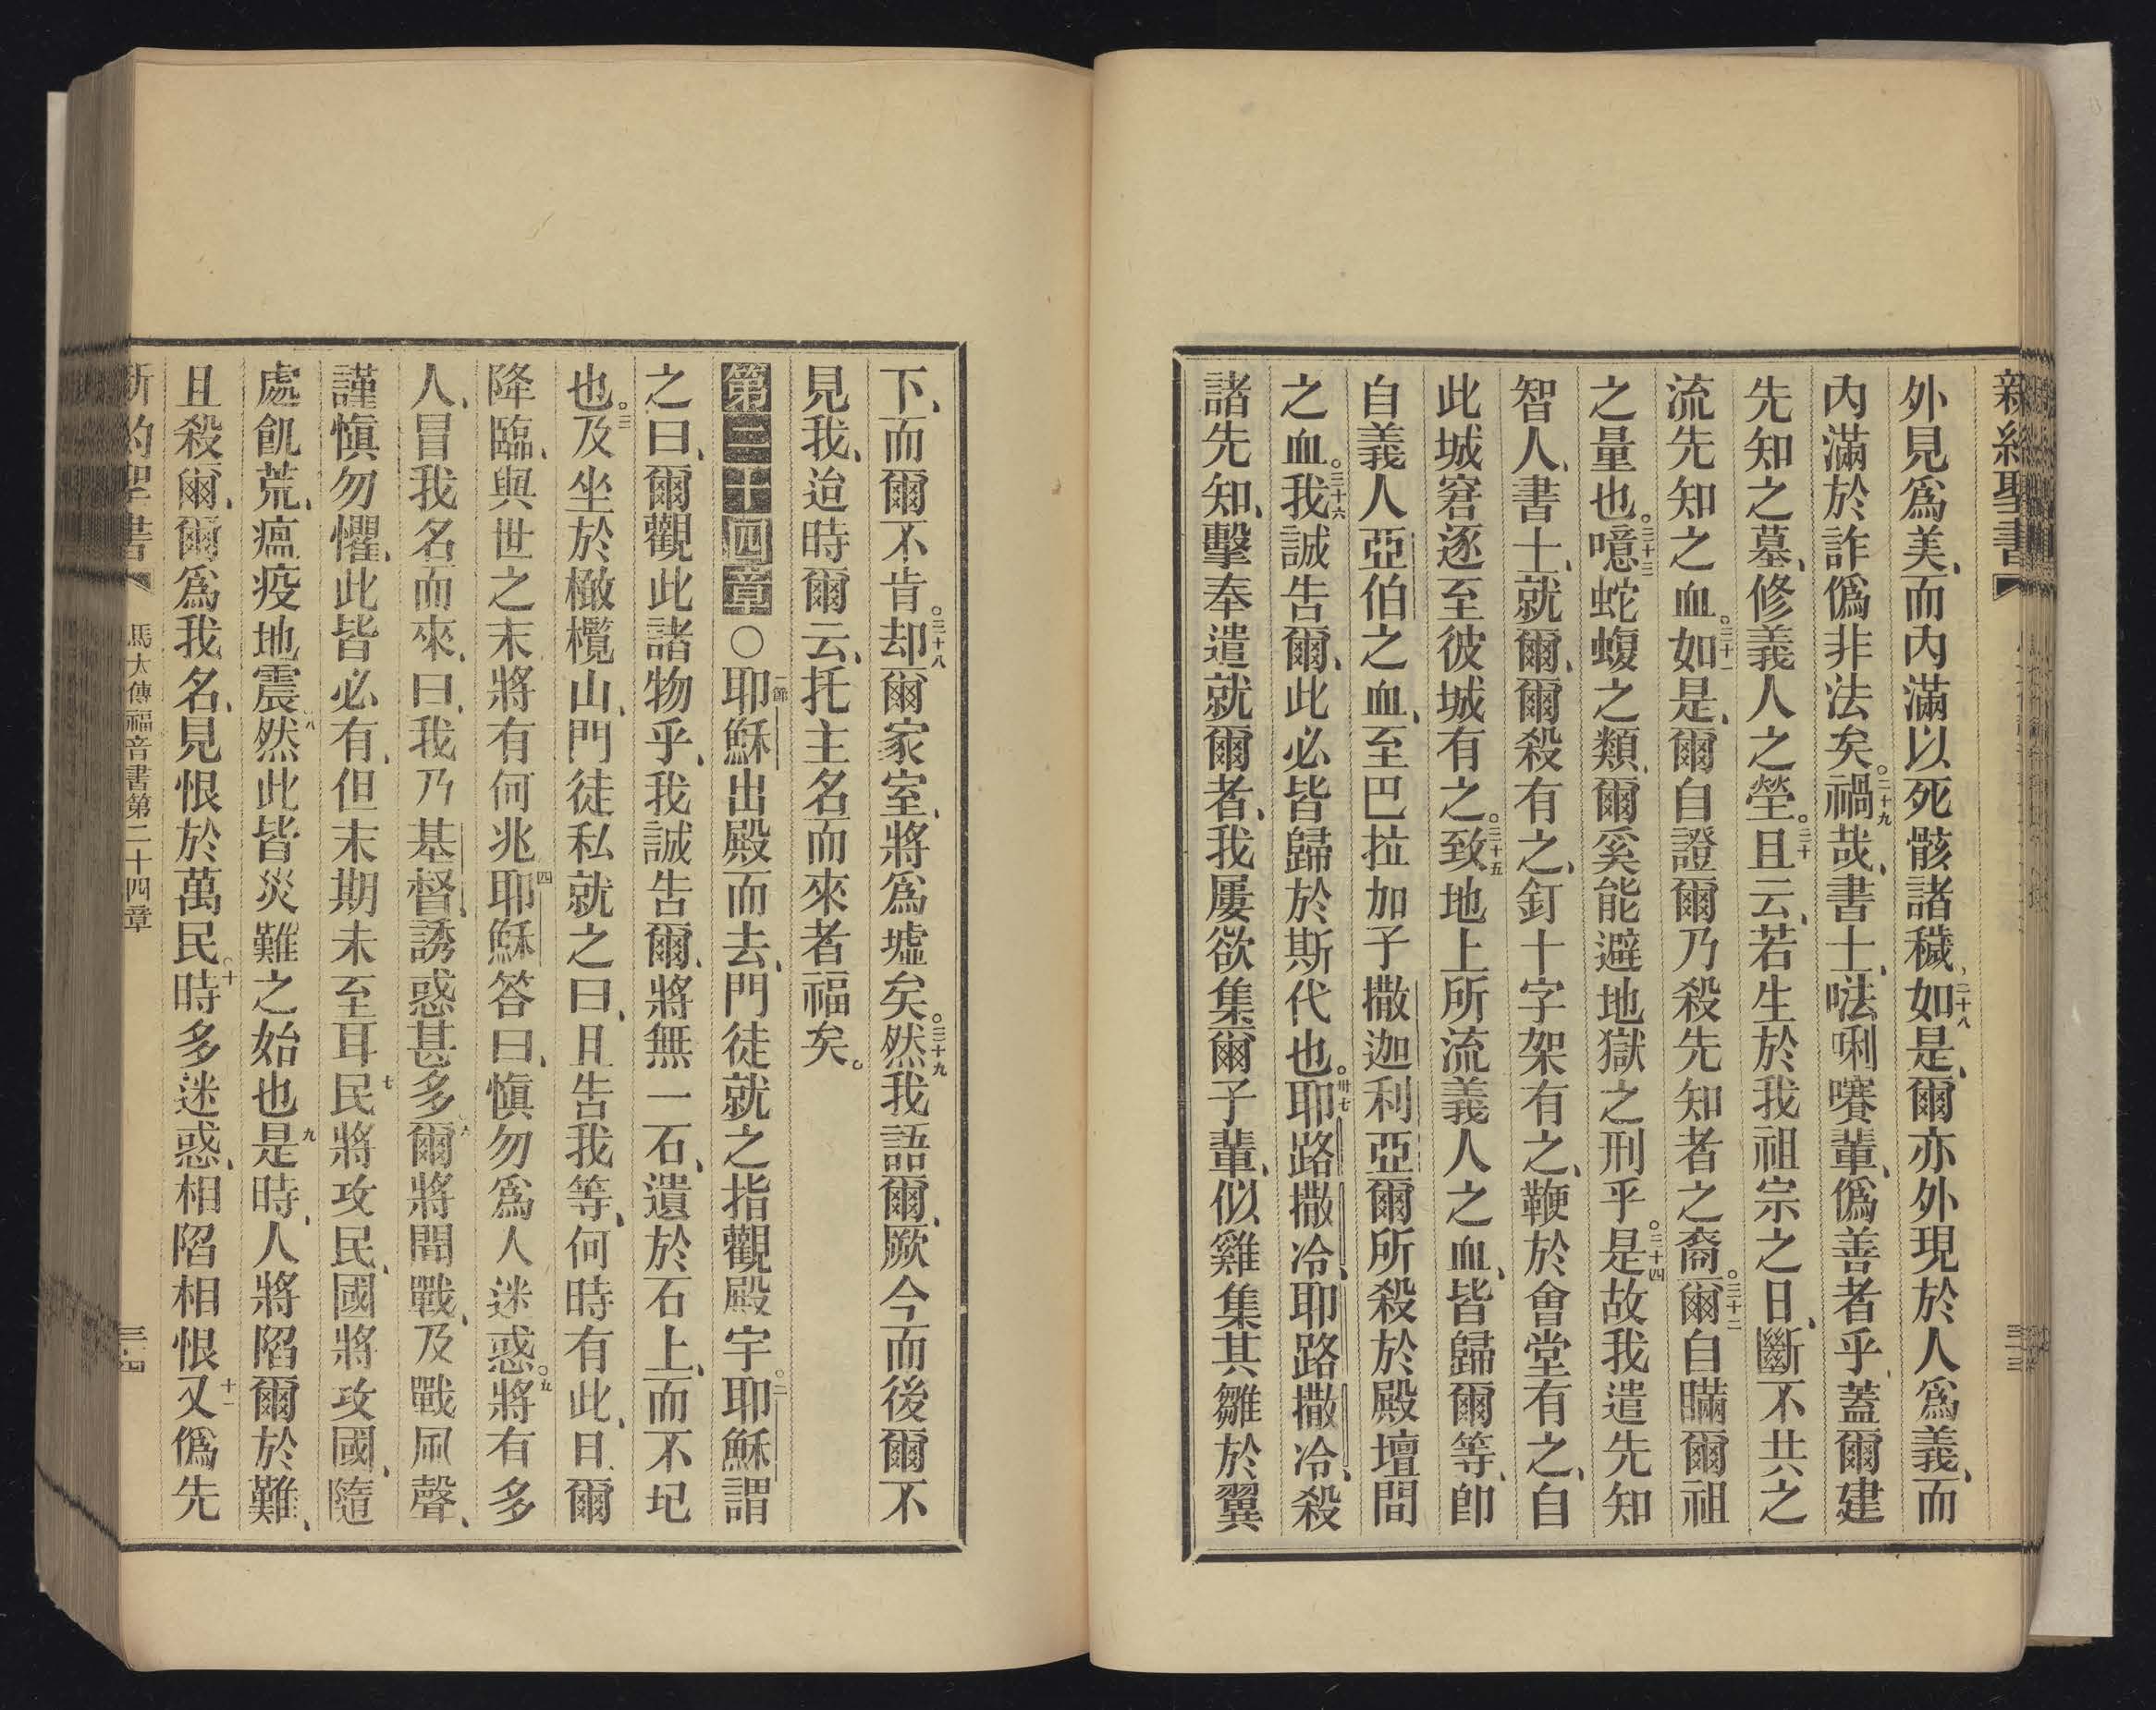 新約聖書
三十三
外見爲美、而內滿以死骸諸穢、二十八如是、爾亦外現於人爲義、而
內滿於詐僞非法矣。二十九禍哉、書士、㖿唎㘔輩、僞善者乎、蓋爾建
先知之墓、修義人之塋。三十且云、若生於我祖宗之日、斷不共之
流先知之血。三十一如是、爾自證爾乃殺先知者之裔。三十二爾自瞞爾祖
之量也。三十三噫、蛇蝮之類、爾奚能避地獄之刑乎。三十四是故我遣先知
智人、書士、就爾、爾殺有之、釘十字架有之、鞭於會堂有之、自
此城窘逐至彼城有之。三十五致地上所流義人之血、皆歸爾等、卽
自義人亞伯之血、至巴拉加子撒迦利亞爾所殺於殿壇間
之血。三十六我誠告爾、此必皆歸於斯代也。卅七耶路撒冷、耶路撒冷、殺
諸先知、擊奉遣就爾者、我屢欲集爾子輩、似雞集其雛於翼
下、而爾不肯。三十八却爾家室、將爲墟矣。三十九然我語爾、厥今而後爾不
見我、迨時爾云、托主名而來者福矣。
第二十四章〇一節耶穌出殿而去、門徒就之指觀殿宇。二耶穌謂
之曰、爾觀此諸物乎、我誠告爾、將無一石、遺於石上、而不圮
也。三及坐於橄欖山、門徒私就之曰、且告我等、何時有此、且爾
降臨、與世之末將有何兆四耶穌答曰、愼勿爲人迷惑。五將有多
人、冒我名而來、曰、我乃基督、誘惑甚多六爾將聞戰、及戰風聲、
謹愼勿懼、此皆必有、但末期未至耳七民將攻民、國將攻國、隨
處飢荒、瘟疫地震八然此皆災難之始也九是時、人將陷爾於難、
且殺爾、爾爲我名、見恨於萬民。十時多迷惑、相陷相恨十一又僞先
新約聖書
馬太傳福音書第二十四章
三十四